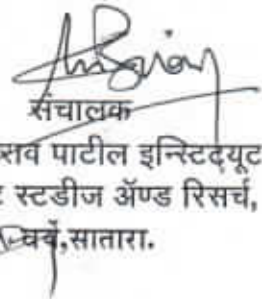 संचालक
सव पाटील इन्स्टिट्यूट
स्टडीज ॲण्ड रिसर्च,
वर्ये,सातारा.